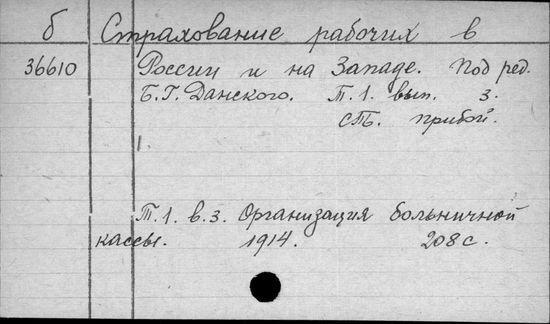 б Страхование рабочих в
36610 России и на Западе. Под ред.
Б.Г. Данского. Т.1. вып. 3.
СПб. прибой.
Т.1. в.3. Организация больничной
кассы. 1914. 208 с.